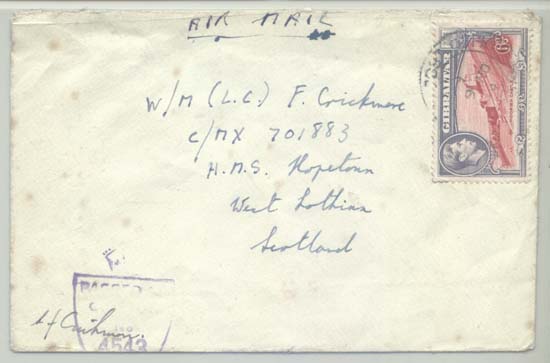 AIR MAIL
W/M (L.C.) F. Crickmore
C/MX 701883
H.M.S. Hopetoun
West Lothian
Scotland
GIBRALTAR
6D
PASSED
4543